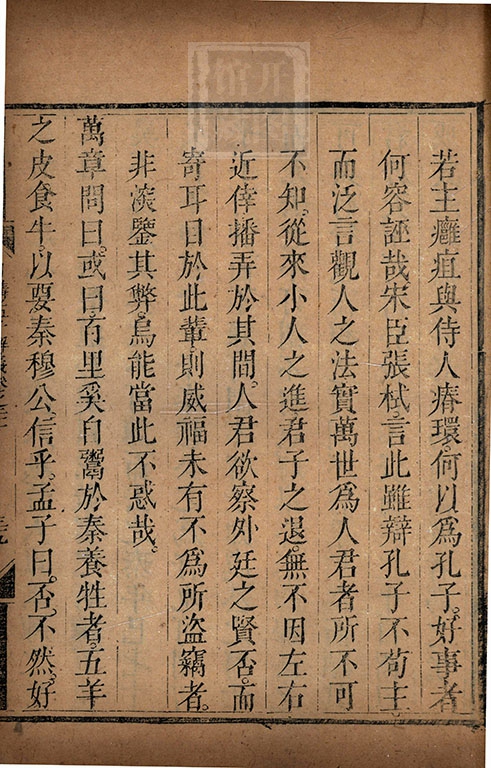 若主癰疽與侍人瘠環何以爲孔子好事者
何容誣哉宋臣張栻言此雖辯孔子不苟主
而泛言觀人之法實萬世爲人君者所不可
不知從來小人之進君子之退無不因左右
近倖播弄於其間人君欲察外廷之賢否而
寄耳目於此輩則威福未有不爲所盜竊者
非深鑒其弊烏能當此不惑哉
萬章問曰或曰百里奚自鬻於秦養牲者五羊
之皮食牛以要秦穆公信乎孟子曰否不然好